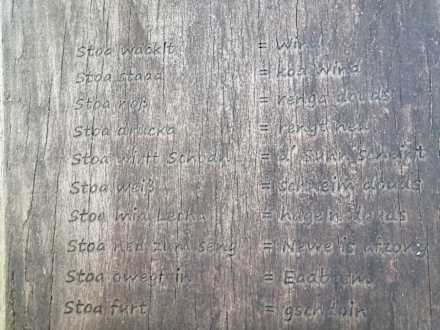 Stoa wacklt = Wind
Stoa staad = koa Wind
Stoa noß = renga duads
Stoa drucka = rengt ned
Stoa Schodn = d' Sunn Scheint
Stoa weiß = Schneim duads
Stoa mia Lecha = hageln duads
Stoa ned zum seng = Newe is afzong
Stoa owegt in =
Stoa furt = gschtoin